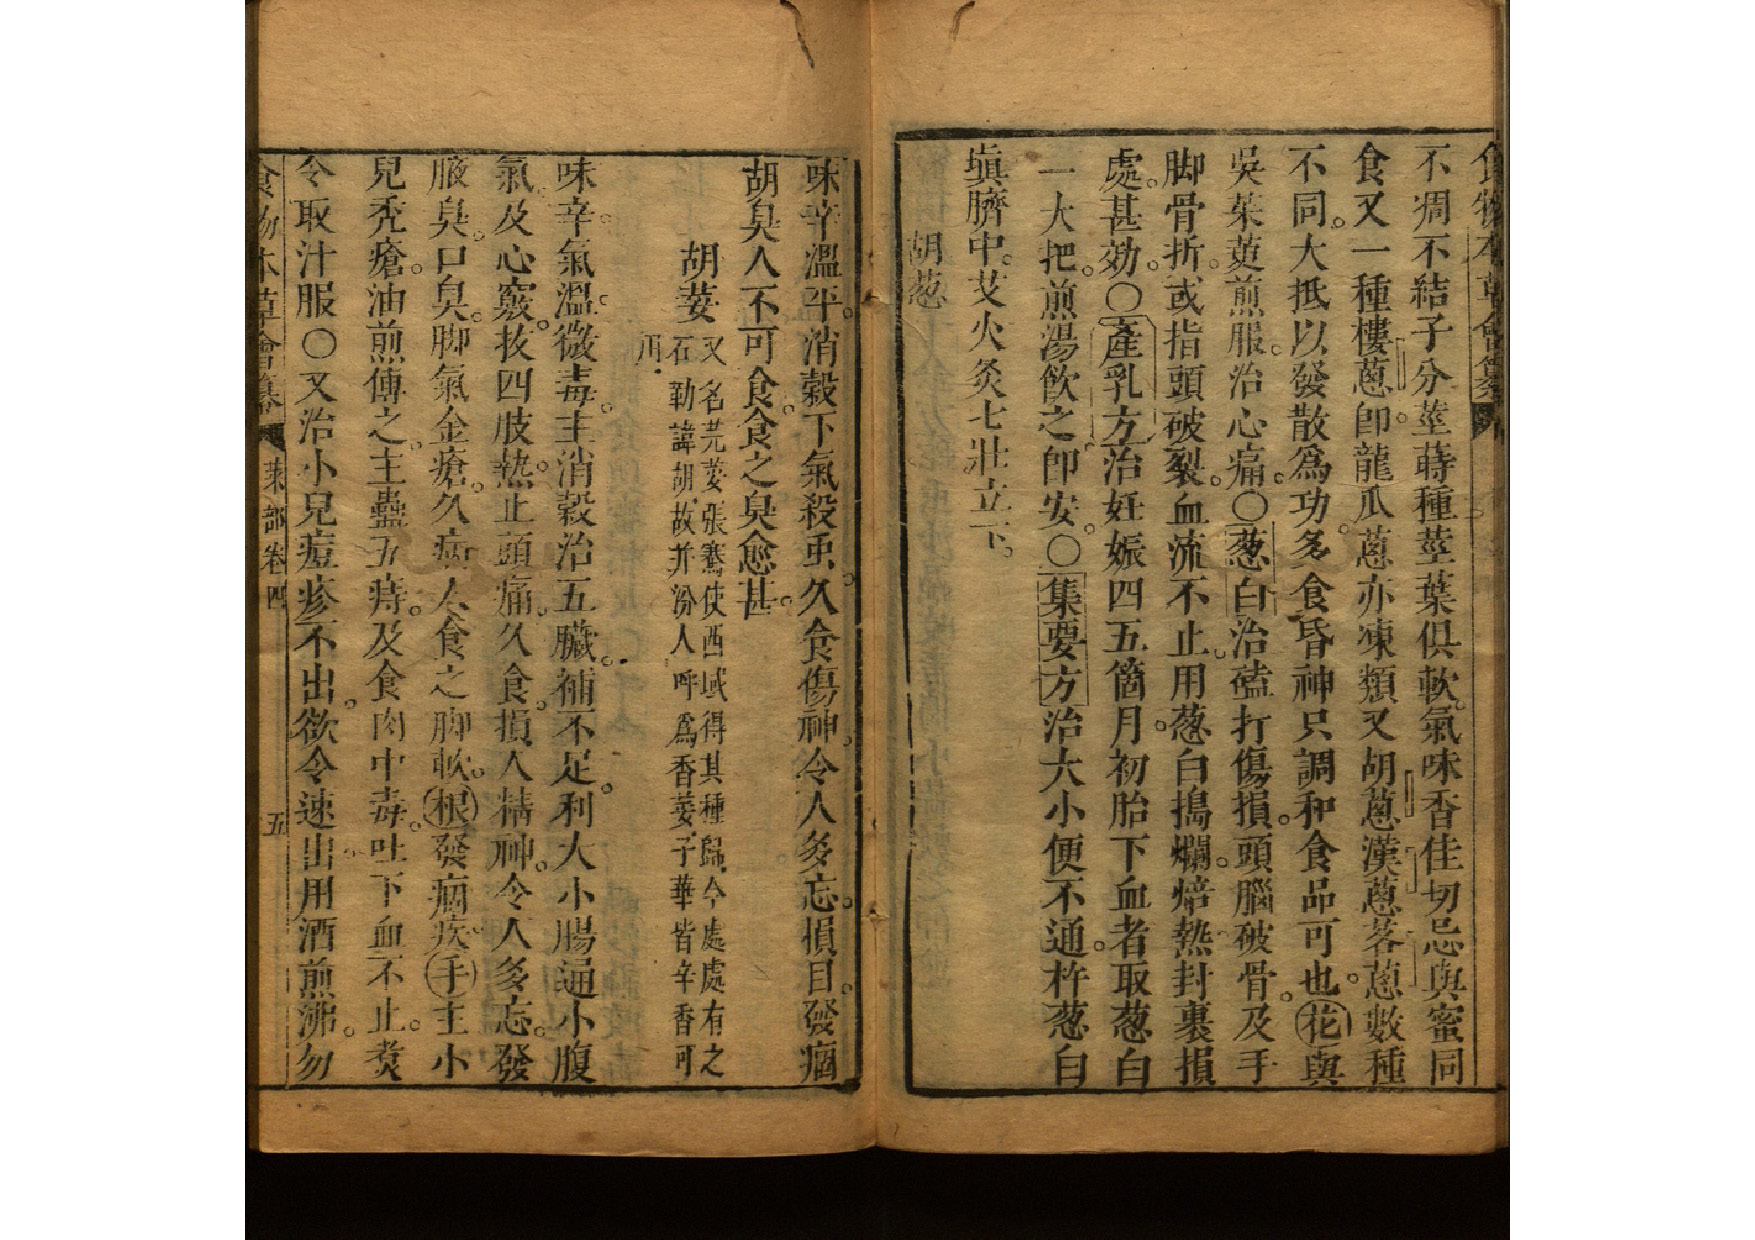 食物本草會纂
不凋不結子分莖蒔種莖葉俱軟氣味香佳切忌與蜜同
食又一種樓蔥卽龍爪蔥亦凍類又胡蔥漢蔥茖蔥數種
不同大抵以發散爲功多食昏神只調和食品可也花與
吳茱萸煎服治心痛〇葱白治磕打傷損頭腦破骨及手
脚骨折或指頭破裂血流不止用葱白搗爛焙熱封裏損
處甚効〇產乳方治妊娠四五箇月初胎下血者取葱白
一大把煎湯飲之卽安〇集要方治大小便不通杵葱白
塡臍中艾火灸七壯立下
胡葱
味辛溫平消穀下氣殺虫久食傷神令人多忘損目發痼
胡臭人不可食食之臭愈甚
胡荽
又名芫荽張騫使西域得其種歸今處處有之
石勒諱胡故并汾人呼爲香荽子華皆辛香可
用
味辛氣溫微毒主消穀治五臟補不足利大小腸通小腹
氣及心竅拔四肢熱止頭痛久食損人精神令人多忘發
腋臭口臭脚氣金瘡久病人食之脚軟根發痼疾子主小
兒禿瘡油煎傅之主蠱五痔及食肉中毒吐下血不止煑
令取汁服〇又治小兒痘疹不出欲令速出用酒煎沸勿
食物本草會纂
菜部卷四
五